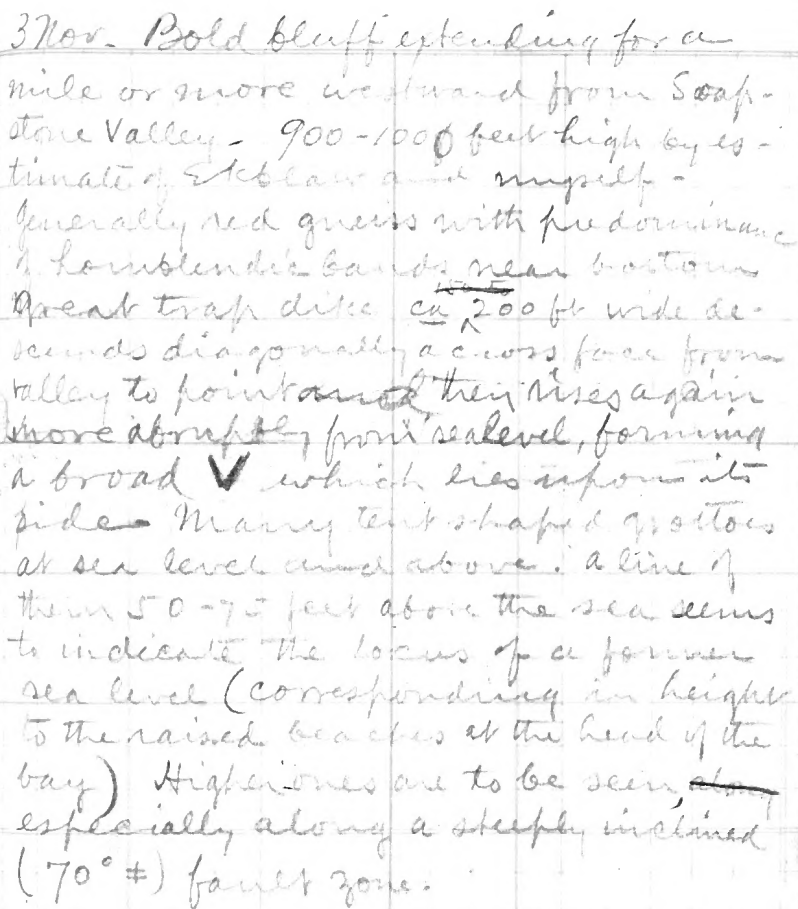 3 Nov. Bold bluff extending for a
mile or more westward from Soap-
stone Valley - 900-1000 feet high by es-
timate of Ekblaw and myself -
Generally red gneiss with predominance
of hornblendic bands near bottom
Great trap dike ca 200 ft wide de-
scends diagonally across face from
valley to point and then rises again
more abruptly from sea level, forming
a broad V which lies upon its
side. Many tent shaped grottoes
at sea level and above. A line of
them 50-75 feet above the sea seems
to indicate the locus of a former
sea level (corresponding in height
to the raised beaches at the head of the
bay) Higher ones are to be seen, along
especially along a steeply inclined
(70° ±) fault zone.